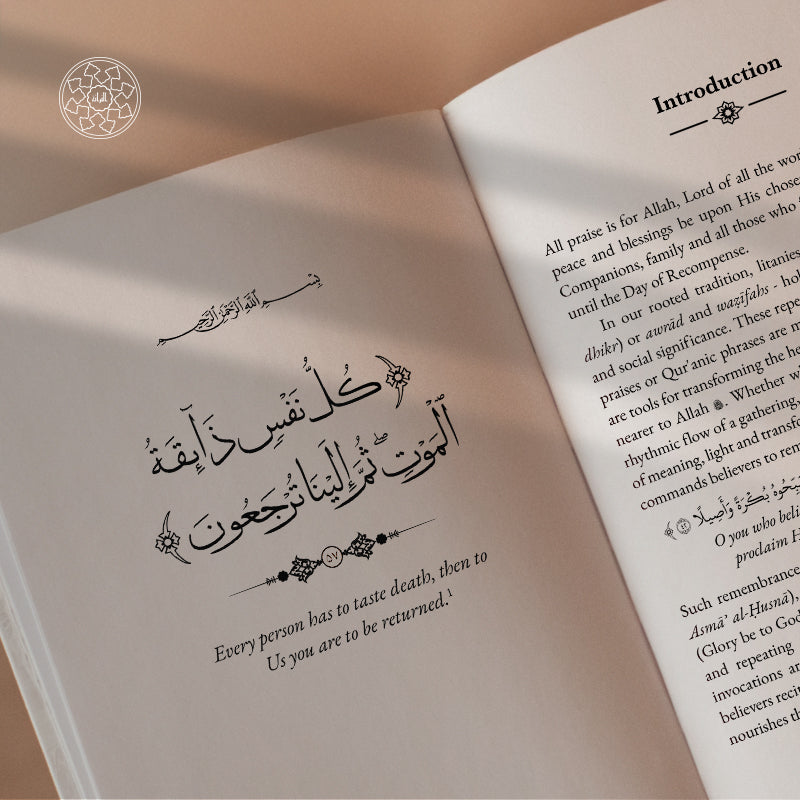 بِسْمِ اللَّهِ الرَّحْمَٰنِ الرَّحِيمِ
﴿كُلُّ نَفْسٍ ذَآئِقَةُ
ٱلْمَوْتِ ۖ ثُمَّ إِلَيْنَا تُرْجَعُونَ﴾
٥٧
Every person has to taste death, then to
Us you are to be returned.¹
Introduction
All praise is for Allah, Lord of all the
peace and blessings be upon His
Companions, family and all those who
until the Day of Recompense.
In our rooted tradition, litanies
dhikr) or awrād and waẓīfahs -
and social significance. These
praises or Qur'anic phrases are
are tools for transforming the
nearer to Allah . Whether
rhythmic flow of a gathering,
of meaning, light and
commands believers to
بُكْرَةً وَأَصِيلًا ﴾
O you who
proclaim
Such remembrance
Asmā' al-Ḥusnā),
(Glory be to
and repeating
invocations
believers
nourishes